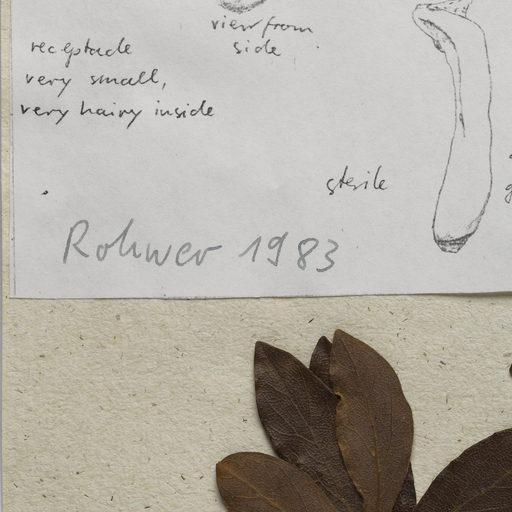 view from
side
receptacle
very small,
very hairy inside
sterile
Rohwer 1983